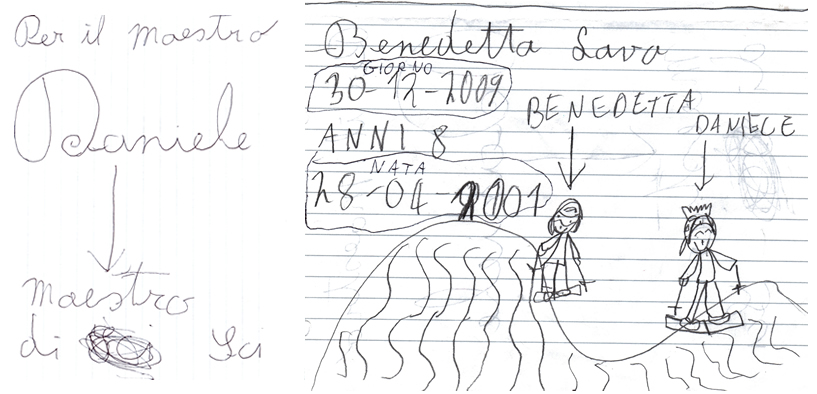 Per il maestro
Daniele
maestro
di sci
Benedetta Lava
GIORNO
30-12-2009
ANNI 8
NATA
28-04-2001
BENEDETTA
DANIELE